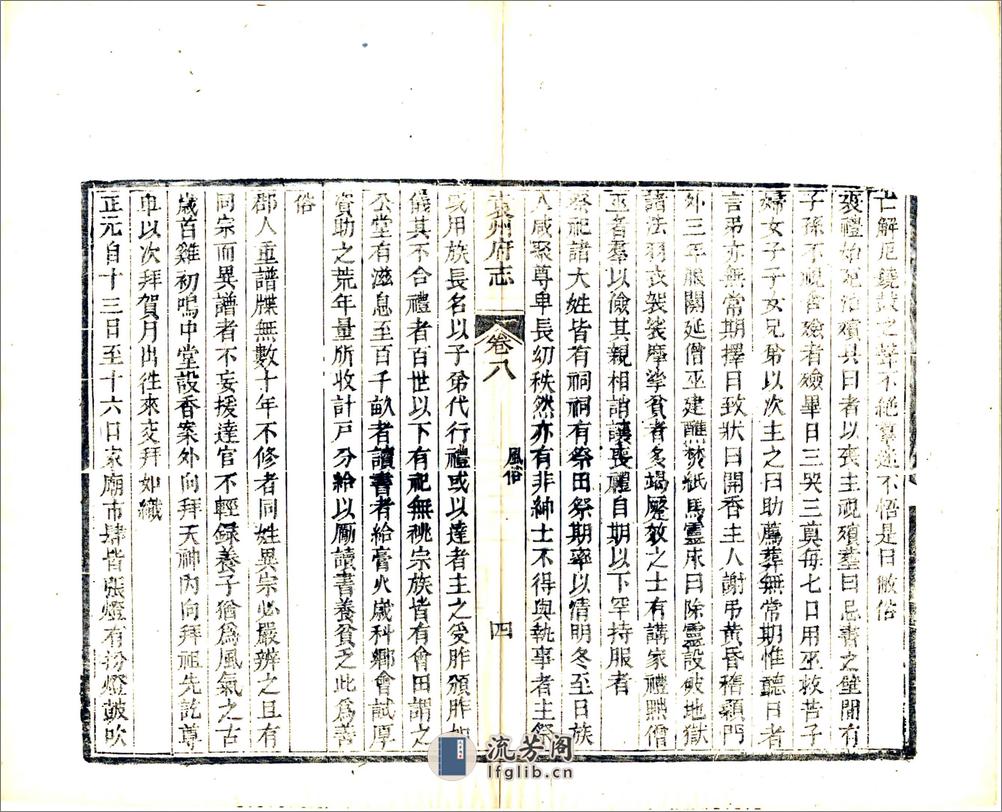 亡解厄鐃鼓之聲不絶羣迷不悟是曰敝俗
喪禮始死沽殯具曰者以喪主視殯墓曰忌書之壁間有
子孫不視含殮者殮畢日三哭三奠每七日用巫救苦子
婦女子子女兄弟以次主之曰助薦葬無常期惟聽日者
言弔亦無常期擇日致狀曰開香主人謝弔黄昏稽顙門
外三年服闋延僧巫建醮焚紙馬靈床曰除靈設破地獄
諸法羽衣袈裟摩挲貧者多竭蹷效之士有講家禮黜僧
巫者羣以儉其親相誚讓喪禮自期以下罕持服者
祭祀諸大姓皆有祠祠有祭田祭期率以清明冬至日族
人咸聚尊卑長幼秩然亦有非紳士不得與執事者主祭
袁州府志 卷八 風俗 四
或用族長名以子弟代行禮或以達者主之受胙頒胙如
儀其不合禮者百世以下有祀無祧宗族皆有會田謂之
公堂有滋息至百千畝者讀書者給膏火歲科鄉會試厚
資助之荒年量所收計戸分給以厲讀書養貧乏此爲善
俗
郡人重譜牒無數十年不修者同姓異宗必嚴辨之且有
同宗而異譜者不妄援達官不輕録養子猶爲風氣之古
歲首雞初鳴中堂設香案外向拜天神内向拜祖先訖尊
卑以次拜賀月出往來交拜如織
正元自十三日至十六日家廟市肆皆張燈有扮燈鼓吹
流芳阁
lfglib.cn